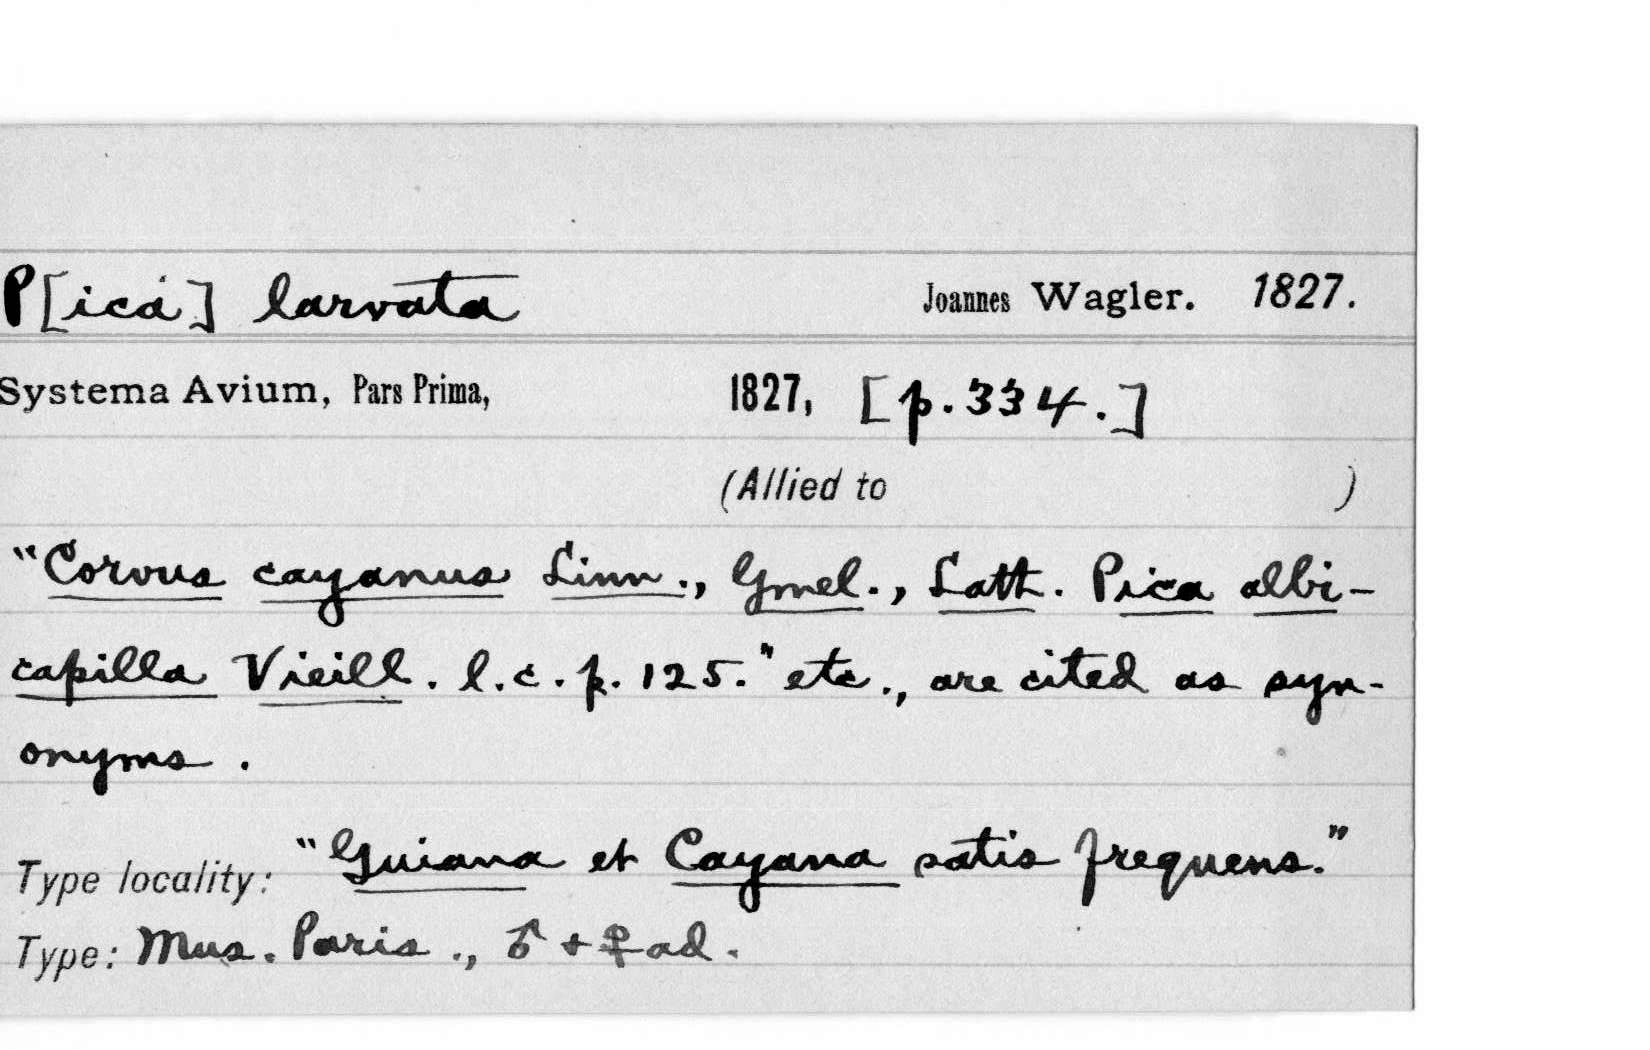 P[ica] larvata Joannes Wagler. 1827.
Systema Avium, Pars Prima, 1827, [p.334.]
(Allied to )
"Corvus cayanus Linn., Gmel., Lath. Pica albi-
capilla Vieill. l.c. p. 125." etc., are cited as syn-
onyms.
Type locality: "Guiana et Cayana satis frequens."
Type: Mus. Paris., ♂ + ♀ ad.